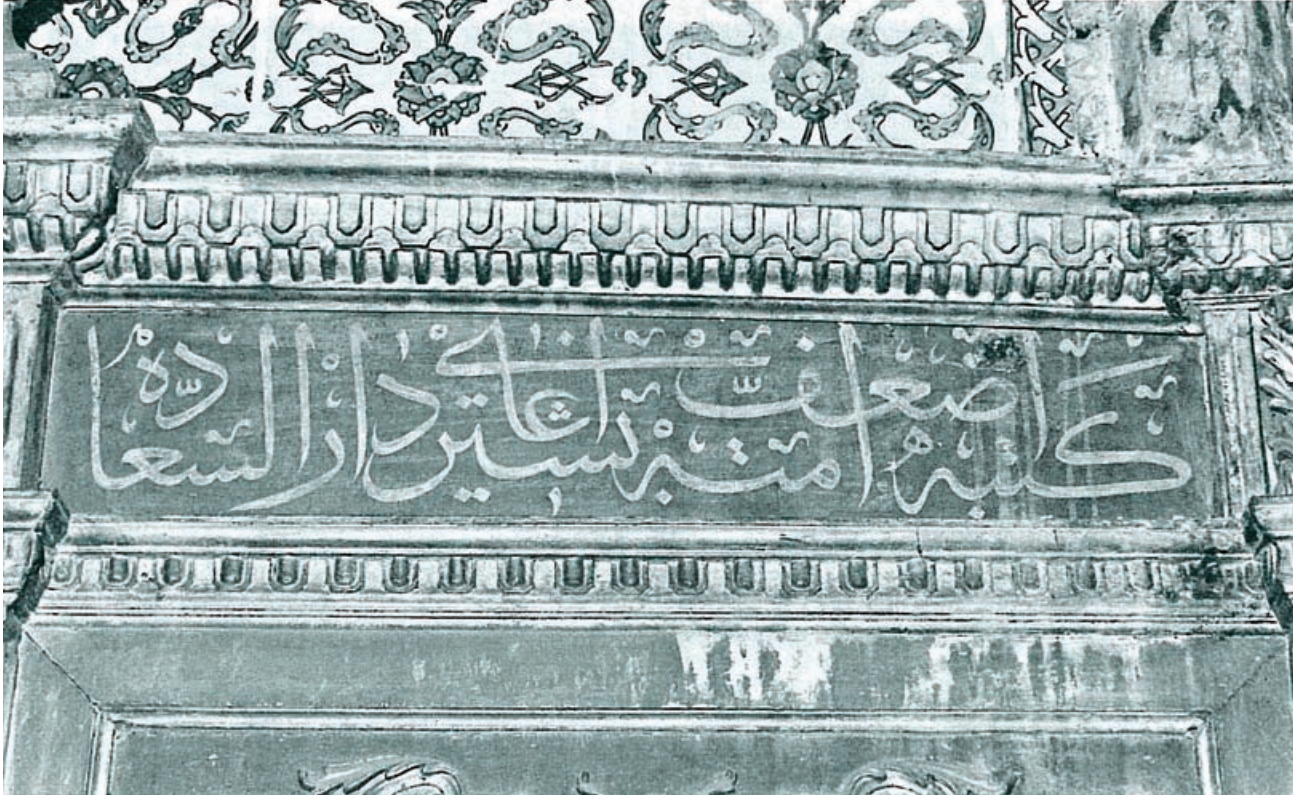 كتبه اضعف امته بشير اغاى دار السعاده